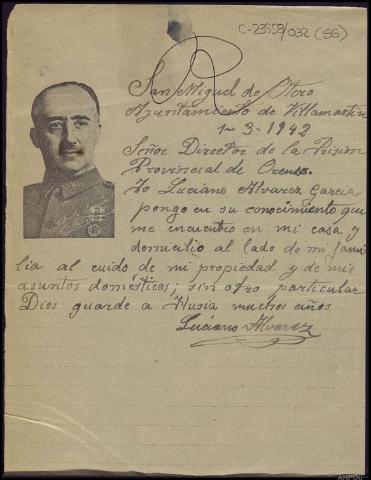 C-23959/032 (SG)
San Miguel de Otero
Ayuntamiento de Villamartin
1-3-1942
Señor Director de la Prisión
Provincial de Orense.
Yo Luciano Alvarez Garcia
pongo en su conocimiento que
me encuentro en mi casa y
domicilio al lado de mi fami
lia al cuido de mi propiedad y de mis
asuntos domésticos; sin otro particular
Dios guarde a Husia muchos años
Luciano Alvarez
AHPOu